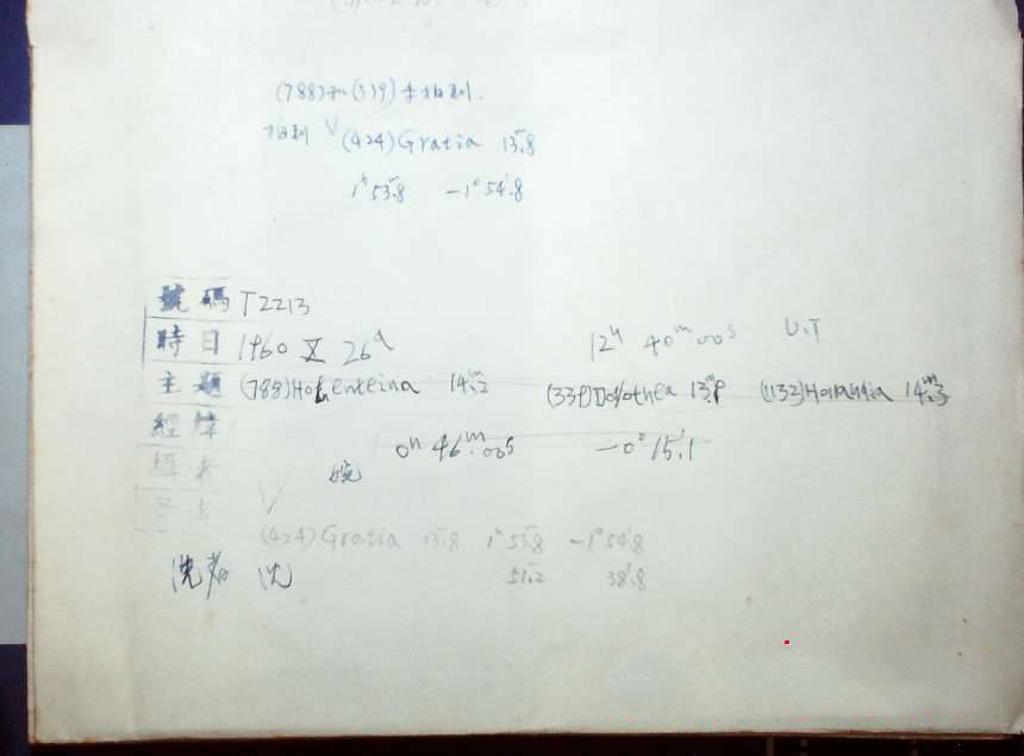 (788)和(339)未拍到.
拍到 V (424)Gratia 13.8
1h 53.8 -1° 54.8
號碼 T2213
時日 1960 X 26d 12h 40m 00s U.T
主題 (788)Hohenteina 14m.2 (339)Dorothea 13m.8 (1132)Hollandia 14m.3
經緯 0h 46m.00s -0° 15'.1
V
(424)Gratia 13.8 1h 53.8 -1° 54'.8
51.2 38'.8
沈 沈